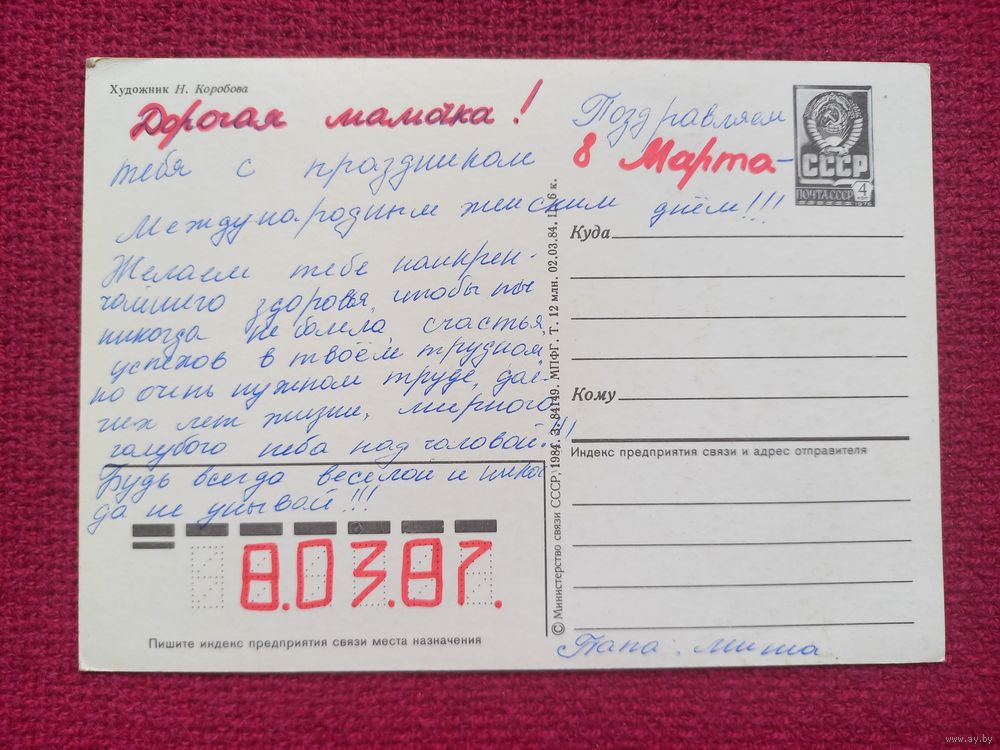 Художник Н. Коробова
Дорогая мамочка! Поздравляем
тебя с праздником 8 Марта-
Международным женским днём!!!
Желаем тебе наикреп-
чайшего здоровья, чтобы ты
никогда не болела, счастья,
успехов в твоём трудном,
но очень нужном труде, дол-
гих лет жизни, мирного
голубого неба над головой!!!
Будь всегда весёлой и никог-
да не унывай!!!
8.03.87.
Пишите индекс предприятия связи места назначения
© Министерство связи СССР, 1984. З. 84149. МПФГ. Т. 12 млн. 02.03.84. Ц. 6 к.
СССР
ПОЧТА СССР 4
1976
Куда
Кому
Индекс предприятия связи и адрес отправителя
Папа. Миша.
www.ay.by